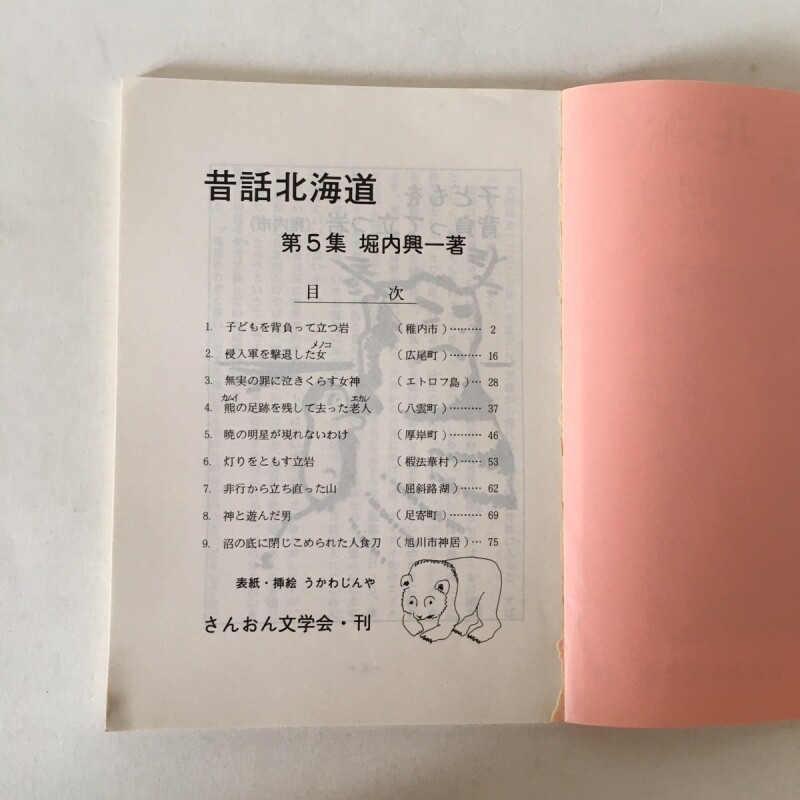 昔話北海道
第5集 堀内興一著
目 次
1. 子どもを背負って立つ岩 (稚内市)……… 2
2. 侵入軍を撃退した女 (メノコ) (広尾町)……… 16
3. 無実の罪に泣きくらす女神 (エトロフ島)… 28
4. 熊 (カムイ) の足跡を残して去った老人 (エカシ) (八雲町)……… 37
5. 暁の明星が現れないわけ (厚岸町)……… 46
6. 灯りをともす立岩 (椴法華村)…… 53
7. 非行から立ち直った山 (屈斜路湖)…… 62
8. 神と遊んだ男 (足寄町)……… 69
9. 沼の底に閉じこめられた人食刀 (旭川市神居)… 75
表紙・挿絵 うかわじんや
さんおん文学会・刊